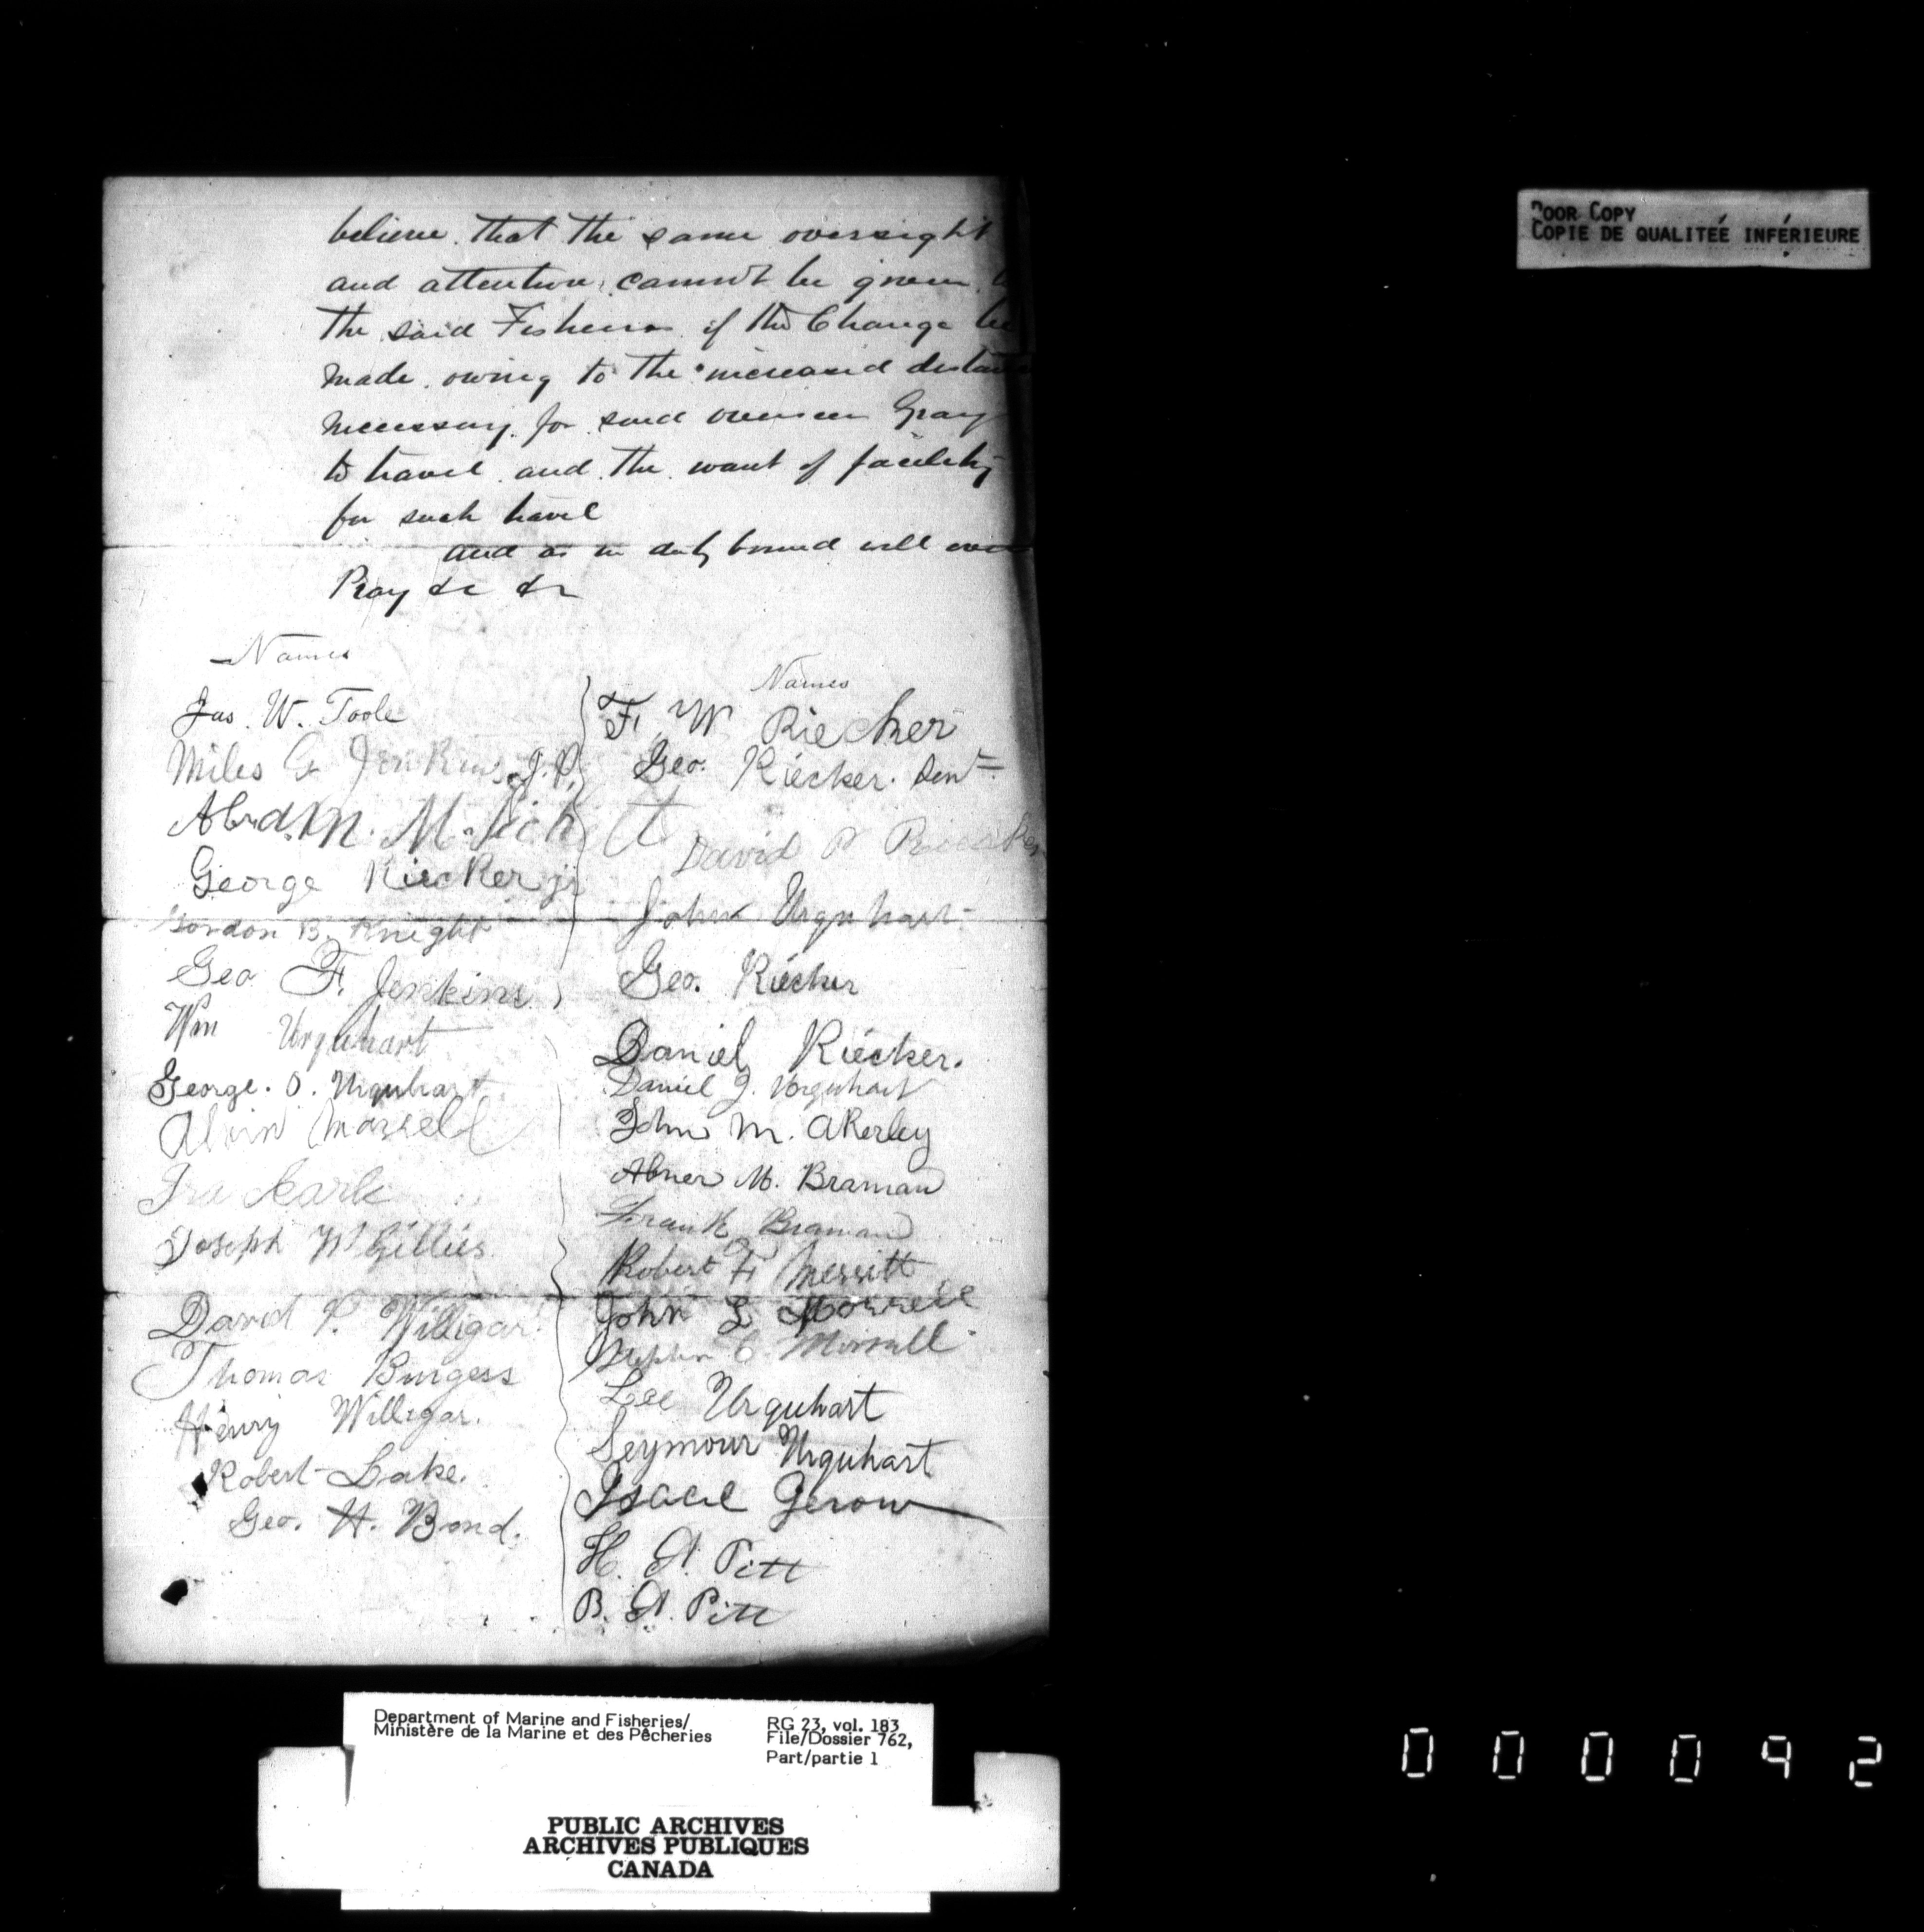 believe that the same oversight
and attention cannot be given
the said Fisheries if the Change be
made owing to the increased distance
necessary for said overseer Gray
to travel and the want of facility
for such travel
and as in duty bound will ever
Pray &c &c
Names
Jas. W. Toole
Miles G Jenkins, J.P.
Abrdm. M.
George Riecker jr
Gordon B. Knight
Geo F. Jenkins
Wm Urquhart
George. O. Urquhart
Alvin
Ira Earle
Joseph W Gillies
David P. Willigar
Thomas Burgess
Henry Willigar.
Robert Lake.
Geo. H. Bond.
Names
F. W Riecker
Geo. Riecker. Senr
David P Riecker
John Urquhart
Geo. Riecker
Daniel Riecker.
Daniel J. Urquhart
John M. Akerley
Abner M. Braman
Frank Braman
Robert F Merritt
John L Morrell
Stephen C. Morrell
Lee Urquhart
Seymour Urquhart
Isaac Gerow
H. A. Pitt
B. A. Pitt
POOR COPY
COPIE DE QUALITÉE INFÉRIEURE
Department of Marine and Fisheries/
Ministère de la Marine et des Pêcheries
RG 23, vol. 183
File/Dossier 762,
Part/partie 1
PUBLIC ARCHIVES
ARCHIVES PUBLIQUES
CANADA
000092